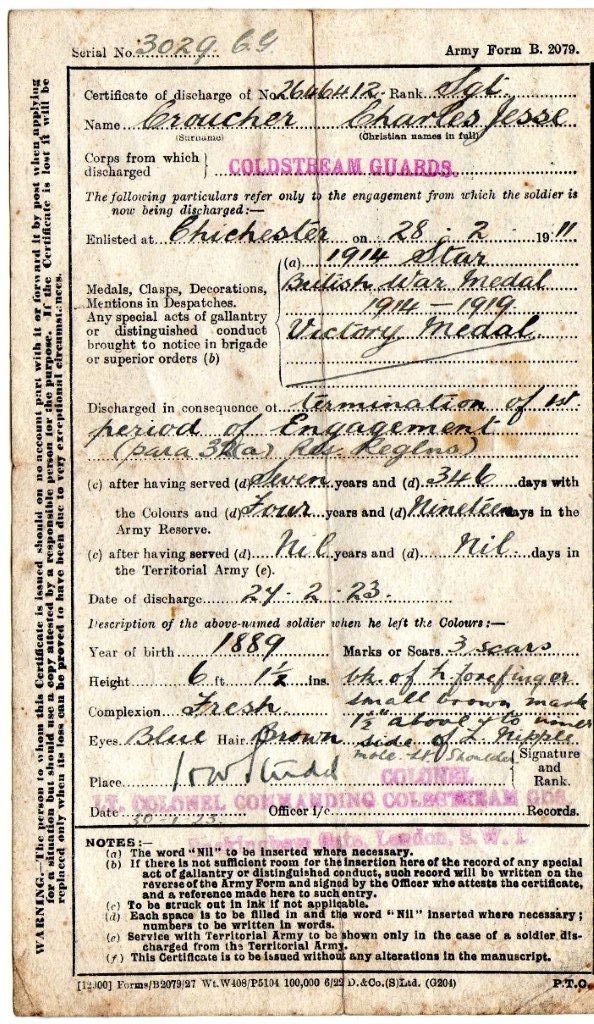 Serial No. 3029. C.G. Army Form B. 2079.
Certificate of discharge of No. 2646412 Rank Sgt
Name Croucher Charles Jesse
(Surname) (Christian names in full)
Corps from which
discharged } COLDSTREAM GUARDS.
The following particulars refer only to the engagement from which the soldier is
now being discharged:—
Enlisted at Chichester on 28 . 2 . 1911
Medals, Clasps, Decorations,
Mentions in Despatches.
Any special acts of gallantry
or distinguished conduct
brought to notice in brigade
or superior orders (b)
(a) 1914 Star
British War Medal
1914 – 1919
Victory Medal
Discharged in consequence of termination of 1st
period of Engagement
(para 32(a) Res. Reglns)
(c) after having served (d) Seven years and (d) 346 days with
the Colours and (d) Four years and (d) Nineteen days in the
Army Reserve.
(c) after having served (d) Nil years and (d) Nil days in
the Territorial Army (e).
Date of discharge 27 . 2 . 23.
Description of the above-named soldier when he left the Colours:—
Year of birth 1889 Marks or Scars 3 scars
Height 6 ft. 1½ ins. bk. of h forefinger
Complexion Fresh small brown mark
1½" above & to inner
Eyes Blue Hair Brown side of L Nipple
mole Lt. Shoulder
Signature
and
Rank.
Place COLONEL
LT. COLONEL COMMANDING COLDSTREAM GDS
Date 30-1-23 Officer i/c Records.
London, S. W. 1
NOTES:—
(a) The word "Nil" to be inserted where necessary.
(b) If there is not sufficient room for the insertion here of the record of any special
act of gallantry or distinguished conduct, such record will be written on the
reverse of the Army Form and signed by the Officer who attests the certificate,
and a reference made here to such entry.
(c) To be struck out in ink if not applicable.
(d) Each space is to be filled in and the word "Nil" inserted where necessary;
numbers to be written in words.
(e) Service with Territorial Army to be shown only in the case of a soldier dis-
charged from the Territorial Army.
(f) This Certificate is to be issued without any alterations in the manuscript.
[12900] Forms/B2079/27 Wt.W408/P5104 100,000 6/22 D.&Co.(S)Ltd. (G204) P.T.O.
WARNING.—The person to whom this Certificate is issued should on no account part with it or forward it by post when applying
for a situation but should use a copy attested by a responsible person for the purpose. If the Certificate is lost it will be
replaced only when its loss can be proved to have been due to very exceptional circumstances.